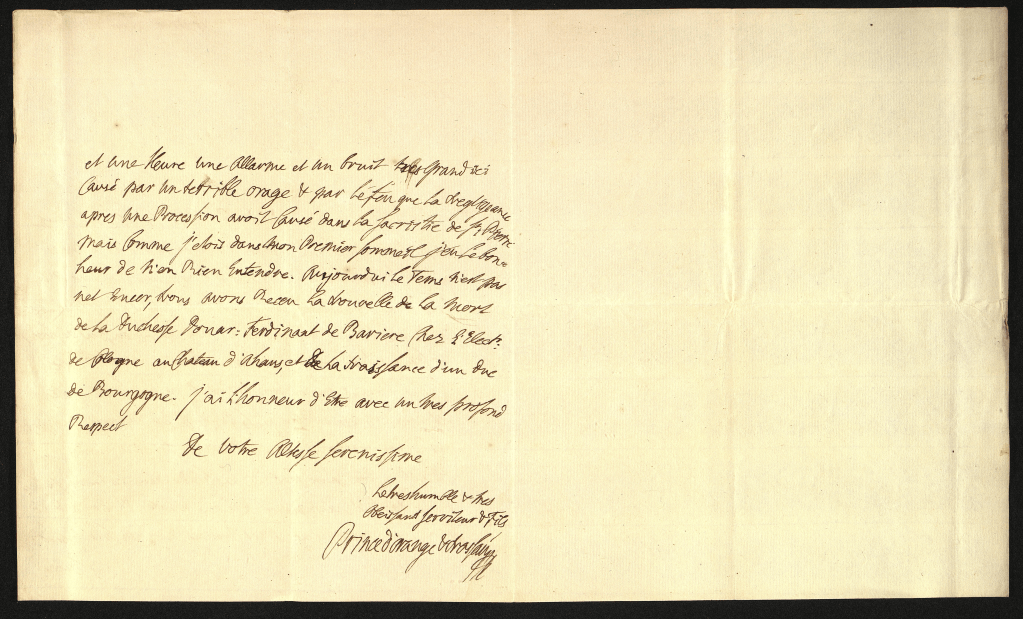 et une Heure une Allarme et un bruit tres grand ici
Causé par un terrible orage & par le feu que la Negligeance
apres une Procession avoit Causé dans la Sacristie de St. Pierre
mais Comme j'etois dans mon Premier Sommeil j'eu le bon=
heur de n'en Rien Entendre. Aujourdui le Tems n'est pas
net Encor, Nous avons Receu la Nouvelle de la mort
de la Duchesse Douar: Ferdinant de Baviere Chez L'Elect:
de Cologne au Chateau d'Ahaus, et de la Naissance d'un Duc
de Bourgogne. j'ai L'honneur d'Etre avec un tres profond
Respect
De Votre Altesse Serenissime
Le tres humble & tres
Obeissant Serviteur & Fils
Prince d'orange & Nassau